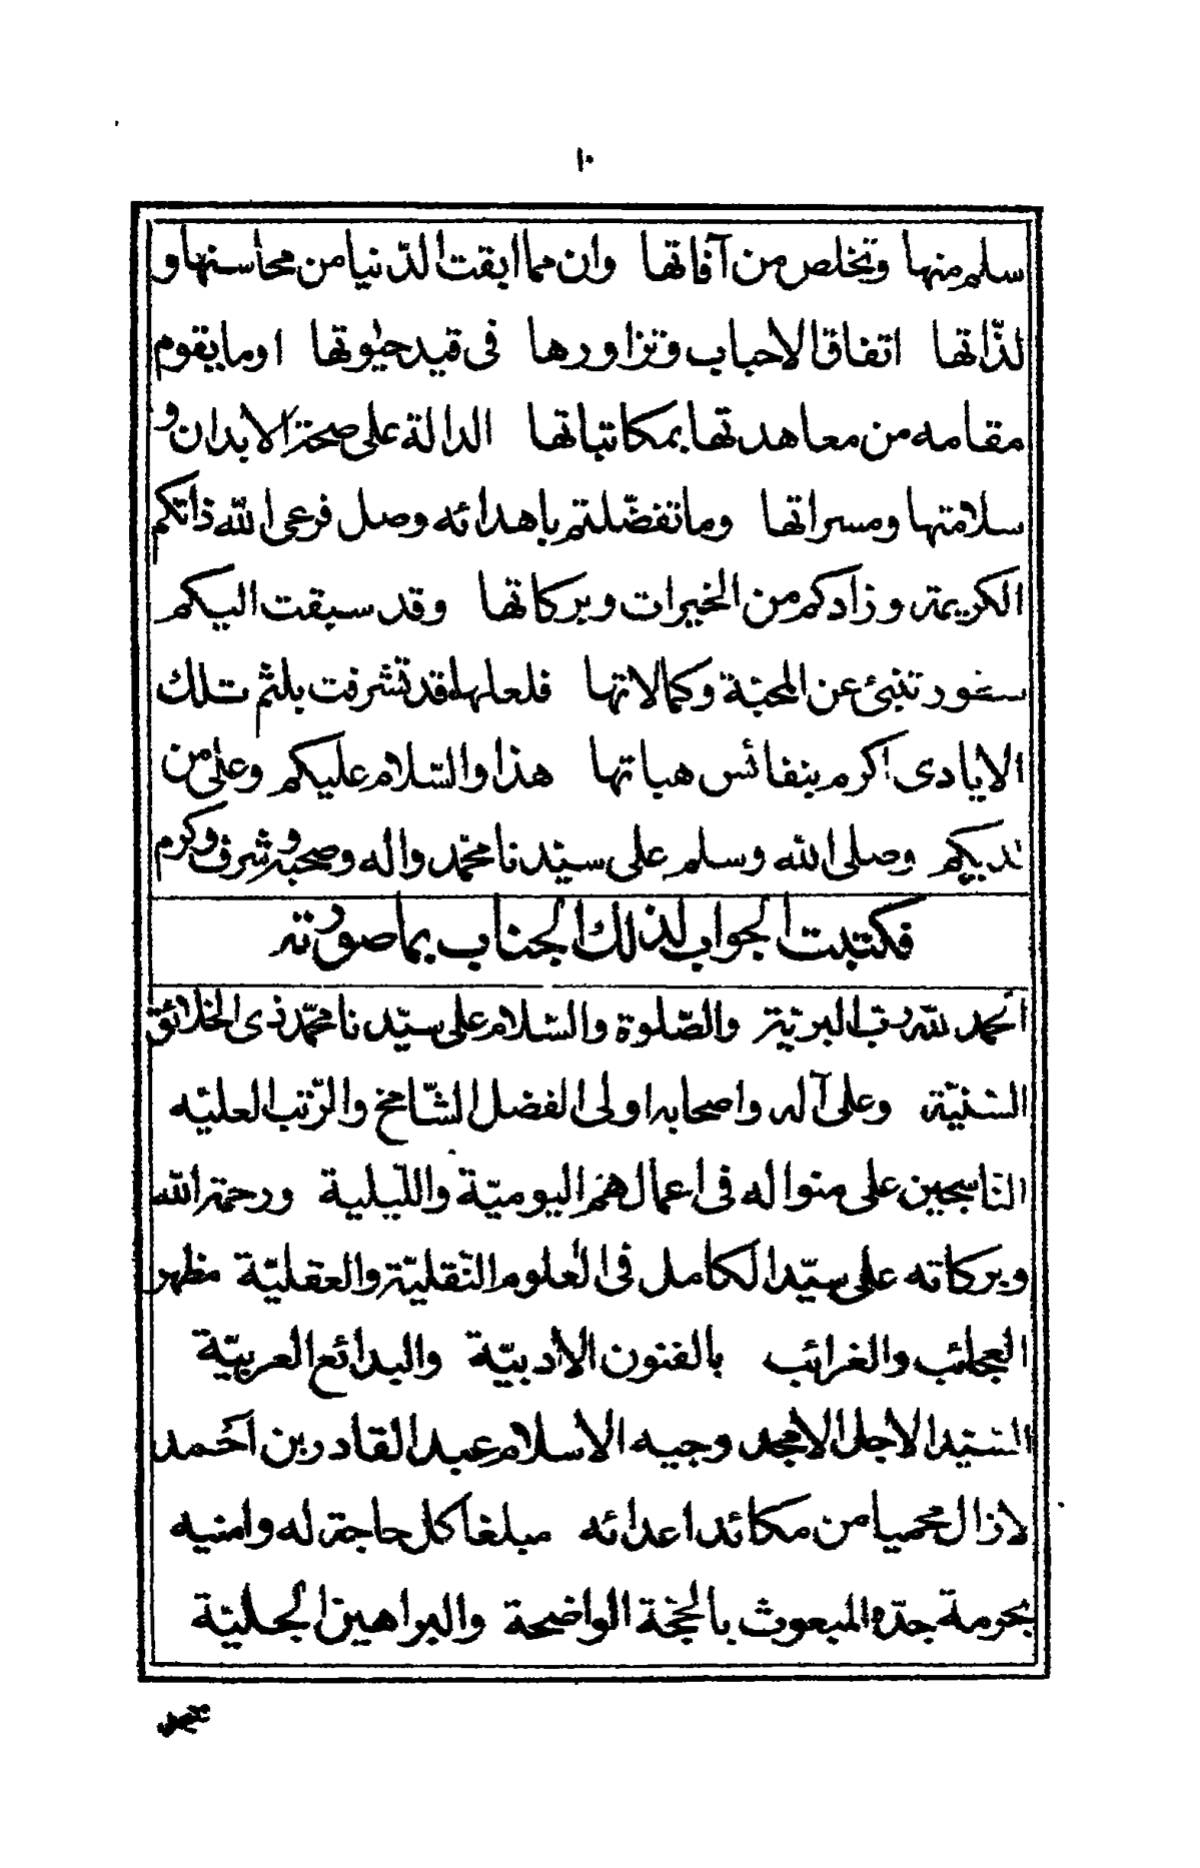 ١٠
سلم منها وتخلص من آفاتها وان مما ابقت الدّنيا من محاسنها و
لذّاتها اتفاق الاحباب وتزاورها فى قيد حيٰوتها اوما يقوم
مقامه من معاهدتها بمكاتباتها الدالة على صحة الابدان و
سلامتها ومسراتها وما تفضّلتم باهدائه وصل فرعى الله ذاتكم
الكريمة وزادكم من الخيرات وبركاتها وقد سبقت اليكم
سطور تنبئ عن المحبّة وكمالاتها فلعلها قد تشرفت بلثم تلك
الايادى اكرم بنفائس هباتها هذا والسّلام عليكم وعلى من
لديكم وصلى الله وسلم على سيّدنا محمّد واله وصحبه وشرف وكرم
فكتبت الجواب لذلك الجناب بما صورته
الحمد لله ربّ البريّة والصّلوة والسّلام على سيّدنا محمّد ذى الخلائق
السّنيّة وعلى آله واصحابه اولى الفضل الشّامخ والرّتب العليّه
النّاسجين على منواله فى اعمالهم اليوميّة واللّيلية ورحمة الله
وبركاته على سيّد الكامل فى العلوم النّقليّة والعقليّة مظهر
العجائب والغرائب بالفنون الأدبيّة والبدائع العربيّة
السّيّد الاجل الامجد وجيه الاسلام عبد القادر بن احمد
لازال محميا من مكائد اعدائه مبلغا كل حاجة له وامنيه
بحرمة جدّه المبعوث بالحجّة الواضحة والبراهين الجليّة